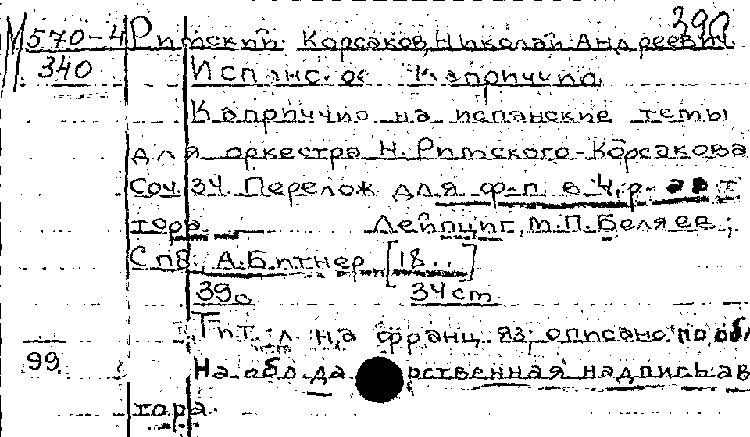 390
М 570-4 Римский-Корсаков, Николай Андреевич
340 Испанское каприччио.
Каприччио на испанские темы
для оркестра Н. Римского-Корсакова
Соч. 34. Перелож для ф-п в 4 р. ав-
тора. — Лейпциг, М.П. Беляев;
Спб., А. Битнер, [18..]
39с 34 cm
Тит. л на франц яз; описано по обл
99 На обл. да рственная надпись ав
тора.